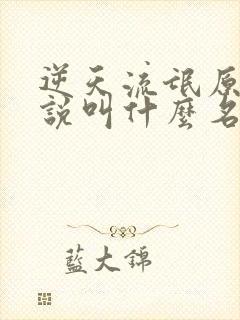 逆天流氓原
說叫什麼名
藍大錦